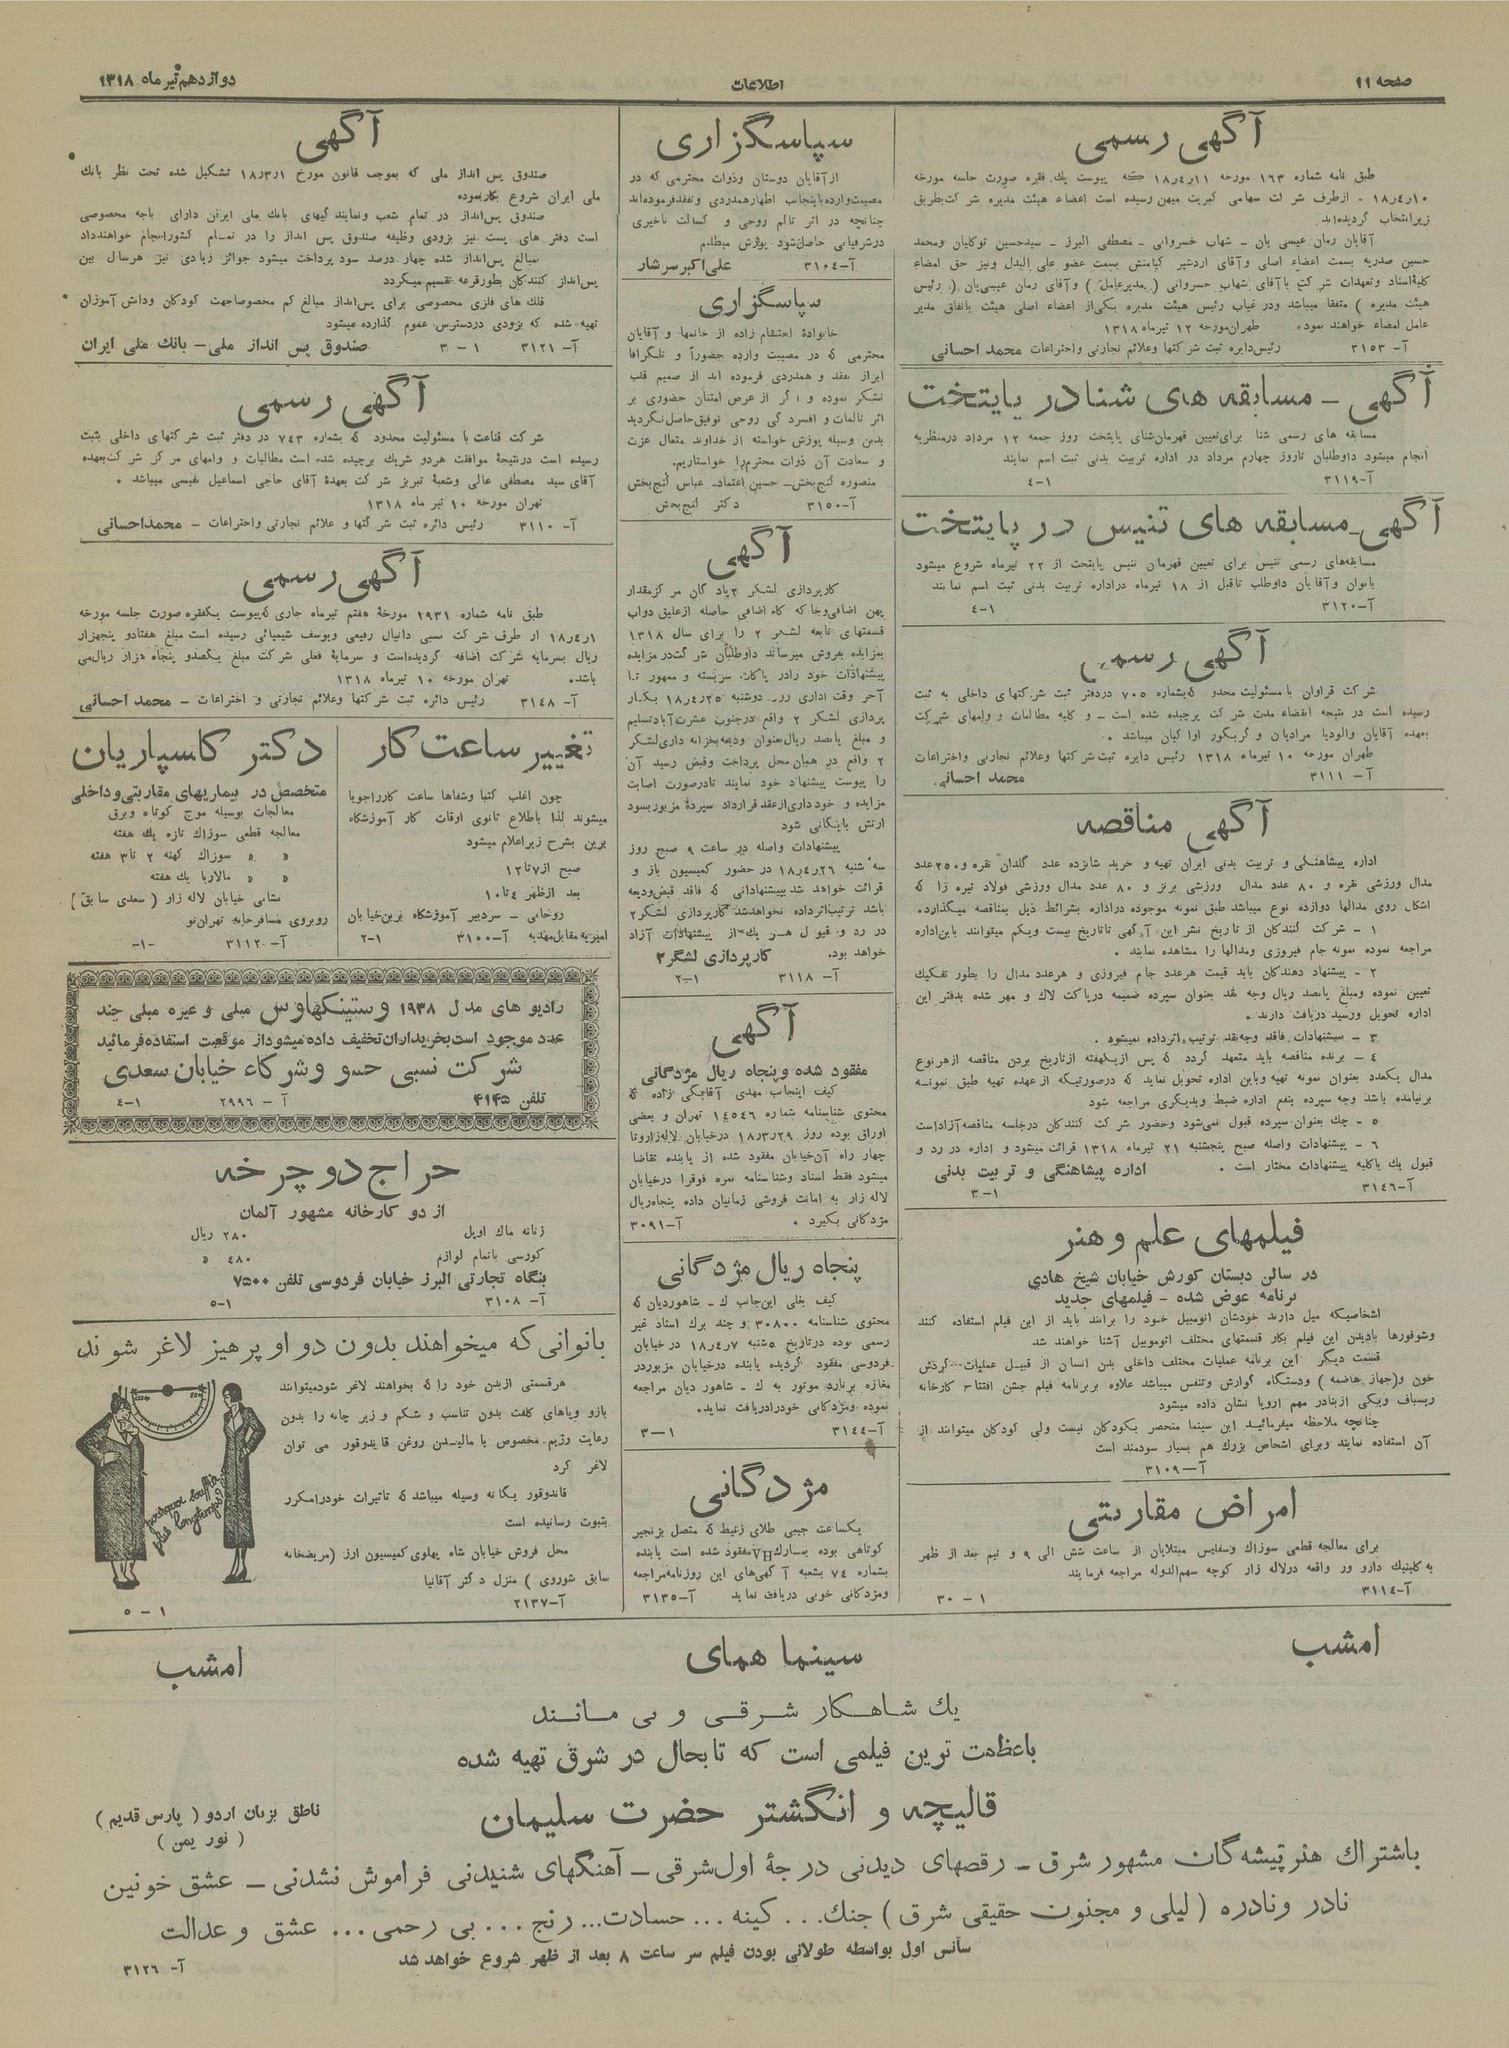 صفحه ۱۱
اطلاعات
دوازدهم تیر ماه ۱۳۱۸
آگهی رسمی
طبق نامه شماره ۱۶۳ مورخه ۱۸ر۴ر۱۱ که پیوست یك فقره صورت جلسه مورخه
۱۸ر۴ر۱۰ - ازطرف شرکت سهامی کبریت میهن رسیده است اعضاء هیئت مدیره شرکت بطریق
زیر انتخاب گردیده اند
آقایان رمان عیسی یان - شهاب خسروانی - مصطفی البرز - سید حسین توکلیان و محمد
حسین صدریه بسمت اعضاء اصلی و آقای اردشیر کیامنش بسمت عضو علی البدل ونیز حق امضاء
کلیه اسناد و تعهدات شرکت با آقای شهاب خسروانی (مدیر عامل) و آقای رمان عیسی یان (رئیس
هیئت مدیره) متفقا میباشد ودر غیاب رئیس هیئت مدیره یکی از اعضاء اصلی هیئت باتفاق مدیر
عامل امضاء خواهند نمود. طهران مورخه ۱۲ تیر ماه ۱۳۱۸
آ- ۳۱۵۳ رئیس دایره ثبت شرکتها وعلائم تجارتی واختراعات محمد احسانی
آگهی - مسابقه های شنا در پایتخت
مسابقه های رسمی شنا برای تعیین قهرمان شنای پایتخت روز جمعه ۱۲ مرداد در منظریه
انجام میشود داوطلبان تا روز چهارم مرداد در اداره تربیت بدنی ثبت اسم نمایند
آ-۳۱۱۹ ۱-۴
آگهی - مسابقه های تنیس در پایتخت
مسابقه های رسمی تنیس برای تعیین قهرمان تنیس پایتخت از ۲۲ تیر ماه شروع میشود
بانوان و آقایان داوطلب تا قبل از ۱۸ تیر ماه در اداره تربیت بدنی ثبت اسم نمایند
آ-۳۱۲۰ ۱-۴
آگهی رسمی
شرکت قراوان با مسئولیت محدود که بشماره ۷۰۵ در دفتر ثبت شرکتهای داخلی به ثبت
رسیده است در نتیجه انقضاء مدت شرکت برچیده شده است - و کلیه مطالبات و وامهای شرکت
بعهده آقایان والودیا مرادیان و گریگور اوا کیان میباشد.
طهران مورخه ۱۰ تیر ماه ۱۳۱۸ رئیس دایره ثبت شرکتها وعلائم تجارتی واختراعات
آ- ۳۱۱۱ محمد احسانی
آگهی مناقصه
اداره پیشاهنگی و تربیت بدنی ایران تهیه و خرید شانزده عدد گلدان نقره و ۲۵۰ عدد
مدال ورزشی نقره و ۸۰ عدد مدال ورزشی برنز و ۸۰ عدد مدال ورزشی فولاد تیره را که
اشکال روی مدالها دوازده نوع میباشد طبق نمونه موجوده در اداره بشرائط ذیل بمناقصه میگذارد.
۱ - شرکت کنندگان از تاریخ نشر این آگهی تا تاریخ بیست ویکم میتوانند باین اداره
مراجعه نموده نمونه جام فیروزی ومدالها را مشاهده نمایند.
۲ - پیشنهاد دهندگان باید قیمت هر عدد جام فیروزی و هر عدد مدال را بطور تفکیك
تعیین نموده ومبلغ پانصد ریال وجه نقد بعنوان سپرده ضمیمه در پاکت لاك و مهر شده بدفتر این
اداره تحویل ورسید دریافت دارند.
۳ - پیشنهادات فاقد وجه نقد ترتیب اثر داده نمیشود.
۴ - برنده مناقصه باید متعهد گردد که پس از یکهفته از تاریخ بردن مناقصه از هر نوع
مدال یکعدد بعنوان نمونه تهیه وباین اداره تحویل نماید که در صورتیکه از عهده تهیه طبق نمونه
برنیامده باشد وجه سپرده بنفع اداره ضبط وبدیگری مراجعه شود
۵ - چك بعنوان سپرده قبول نمی شود وحضور شرکت کنندگان در جلسه مناقصه آزاد است
۶ - پیشنهادات واصله صبح پنجشنبه ۲۱ تیر ماه ۱۳۱۸ قرائت میشود و اداره در رد و
قبول یك یا کلیه پیشنهادات مختار است. اداره پیشاهنگی و تربیت بدنی
آ-۳۱۴۶ ۱-۳
فیلمهای علم وهنر
در سالن دبستان کورش خیابان شیخ هادی
برنامه عوض شده - فیلمهای جدید
اشخاصیکه میل دارند خودشان اتومبیل خود را برانند باید از این فیلم استفاده کنند
وشوفورها بادیدن این فیلم بکار قسمتهای مختلف اتومبیل آشنا خواهند شد
قسمت دیگر این برنامه عملیات مختلف داخلی بدن انسان از قبیل عملیات گردش
خون و(جهاز هاضمه) ودستگاه گوارش وتنفس میباشد علاوه بر برنامه فیلم جشن افتتاح کارخانه
ریسباف ویکی از بنادر مهم اروپا نشان داده میشود
چنانچه ملاحظه میفرمائید این سینما منحصر بکودکان نیست ولی کودکان میتوانند از
آن استفاده نمایند وبرای اشخاص بزرك هم بسیار سودمند است
آ-۳۱۰۹
امراض مقاربتی
برای معالجه قطعی سوزاك وسفلیس مبتلایان از ساعت شش الی ۹ و نیم بعد از ظهر
به کلینیك دارو ور واقعه در لاله زار کوچه سهم الدوله مراجعه فرمایند
آ-۳۱۱۴ ۱ - ۳۰
سپاسگزاری
از آقایان دوستان وذوات محترمی که در
مصیبت وارده باینجانب اظهار همدردی وتفقد فرموده اند
چنانچه در اثر تالم روحی و کسالت تاخیری
در شرفیابی حاصل شود پوزش میطلبم
آ-۳۱۰۴ علی اکبر سرشار
سپاسگزاری
خانواده احتشام زاده از خانمها و آقایان
محترمی که در مصیبت وارده حضوراً و تلگرافا
ابراز تفقد و همدردی فرموده اند از صمیم قلب
تشکر نموده و اگر از عرض امتنان حضوری بر
اثر تالمات و افسردگی روحی توفیق حاصل نگردید
بدین وسیله پوزش خواسته از خداوند متعال عزت
و سعادت آن ذوات محترم را خواستاریم.
منصوره گنج بخش - حسین اعتماد - عباس گنج بخش
آ-۳۱۵۰ دکتر گنج بخش
آگهی
کارپردازی لشکر ۲ پادگان مرکز مقدار
پهن اضافی وخاکه کاه اضافی حاصله از علیق دواب
قسمتهای تابعه لشکر ۲ را برای سال ۱۳۱۸
بمزایده بفروش میرساند داوطلبان شرکت در مزایده
پیشنهادات خود را در پاکت سربسته و ممهور تا
آخر وقت اداری روز دوشنبه ۱۸ر۴ر۲۵ بکار
پردازی لشکر ۲ واقع در جنوب عشرت آباد تسلیم
و مبلغ پانصد ریال بعنوان ودیعه بخزانه داری لشکر
۲ واقع در همان محل پرداخت وقبض رسید آن
را پیوست پیشنهاد خود نمایند تا در صورت اصابت
مزایده و خودداری از عقد قرارداد سپرده مزبور بسود
ارتش بایگانی شود
پیشنهادات واصله در ساعت ۹ صبح روز
سه شنبه ۱۸ر۴ر۲۶ در حضور کمیسیون باز و
قرائت خواهد شد بپیشنهاداتی که فاقد قبض ودیعه
باشد ترتیب اثر داده نخواهد شد کارپردازی لشکر ۲
در رد و قبول هر یك از پیشنهادات آزاد
خواهد بود. کارپردازی لشگر ۲
آ- ۳۱۱۸ ۱-۲
آگهی
مفقود شده و پنجاه ریال مژدگانی
کیف اینجانب مهدی آقابگی نژاده که
محتوی شناسنامه شماره ۱۴۵۴۶ تهران و بعضی
اوراق بوده روز ۱۸ر۳ر۲۹ در خیابان لاله زار و تا
چهار راه آن خیابان مفقود شده از یابنده تقاضا
میشود فقط اسناد وشناسنامه نمره فوق را در خیابان
لاله زار به امانت فروشی زمانیان داده پنجاه ریال
مژدگانی بگیرد. آ-۳۰۹۱
پنجاه ریال مژدگانی
کیف بغلی این جانب ك - شاهوردیان که
محتوی شناسنامه ۳۰۸۰۰ و چند برك اسناد غیر
رسمی بوده در تاریخ ۵شنبه ۱۸ر۴ر۷ در خیابان
فردوسی مفقود گردیده یابنده در خیابان مزبور در
مغازه برنارد موتور به ك - شاهوردیان مراجعه
نموده ومژدگانی خود را دریافت نماید.
آ-۳۱۴۴ ۱-۳
مژدگانی
یکساعت جیبی طلای زنیط که متصل بزنجیر
کوتاهی بوده بمارك VH مفقود شده است یابنده
بشماره ۷۴ بشعبه آگهی های این روزنامه مراجعه
ومژدگانی خوبی دریافت نماید آ-۳۱۳۵
آگهی
صندوق پس انداز ملی که بموجب قانون مورخ ۱۸ر۳ر۱ تشکیل شده تحت نظر بانك
ملی ایران شروع بکار نموده
صندوق پس انداز در تمام شعب ونمایندگیهای بانك ملی ایران دارای باجه مخصوصی
است دفتر های پست نیز بزودی وظیفه صندوق پس انداز را در تمام کشور انجام خواهند داد
مبالغ پس انداز شده چهار درصد سود پرداخت میشود جوائز زیادی نیز هر سال بین
پس انداز کنندگان بطور قرعه تقسیم میگردد
قلك های فلزی مخصوصی برای پس انداز مبالغ کم مخصوصا جهت کودکان ودانش آموزان
تهیه شده که بزودی در دسترس عموم گذارده میشود
آ- ۳۱۲۱ ۱ - ۳ صندوق پس انداز ملی - بانك ملی ایران
آگهی رسمی
شرکت قناعت با مسئولیت محدود که بشماره ۷۴۳ در دفتر ثبت شرکتهای داخلی بثبت
رسیده است در نتیجه موافقت هر دو شریك برچیده شده است مطالبات و وامهای مرکز شرکت بعهده
آقای سید مصطفی عالی وشعبه تبریز شرکت بعهده آقای حاجی اسماعیل نفیسی میباشد.
تهران مورخه ۱۰ تیر ماه ۱۳۱۸
آ- ۳۱۱۰ رئیس دائره ثبت شرکتها و علائم تجارتی واختراعات - محمد احسانی
آگهی رسمی
طبق نامه شماره ۱۹۳۱ مورخه هفتم تیر ماه جاری که پیوست یکفقره صورت جلسه مورخه
۱۸ر۴ر۱ از طرف شرکت نسبی دانیال رفیعی ویوسف شیمیائی رسیده است مبلغ هفتاد و پنجهزار
ریال بسرمایه شرکت اضافه گردیده است و سرمایه فعلی شرکت مبلغ یکصد و پنجاه هزار ریال می
باشد. تهران مورخه ۱۰ تیر ماه ۱۳۱۸
آ- ۳۱۴۸ رئیس دائره ثبت شرکتها وعلائم تجارتی و اختراعات - محمد احسانی
تغییر ساعت کار
چون اغلب کتبا وشفاها ساعت کار را جویا
میشوند لذا باطلاع ثانوی اوقات کار آموزشگاه
برین بشرح زیر اعلام میشود
صبح از ۷ تا ۱۲
بعد از ظهر ۴ تا ۱۰
روحانی - سردبیر آموزشگاه برین خیابان
امیریه مقابل مهدیه آ-۳۱۰۰ ۱-۲
دکتر کاسپاریان
متخصص در بیماریهای مقاربتی و داخلی
معالجات بوسیله موج کوتاه وبرق
معالجه قطعی سوزاك تازه یك هفته
» » سوزاك کهنه ۲ تا ۳ هفته
» » مالاریا یك هفته
نشانی خیابان لاله زار (سعدی سابق)
روبروی مسافرخانه تهران نو
آ-۳۱۱۲ -۱-
رادیو های مدل ۱۹۳۸ وستینگهاوس مبلی و غیره مبلی چند
عدد موجود است بخریداران تخفیف داده میشود از موقعیت استفاده فرمائید
شرکت نسبی حسو و شرکاء خیابان سعدی
تلفن ۴۱۴۵ آ - ۲۹۹۶ ۱-۴
حراج دوچرخه
از دو کارخانه مشهور آلمان
زنانه ماك اوپل ۲۸۰ ریال
کورسی باتمام لوازم ۴۸۰ »
بنگاه تجارتی البرز خیابان فردوسی تلفن ۷۵۰۰
آ- ۳۱۰۸ ۱-۵
بانوانی که میخواهند بدون دوا و پرهیز لاغر شوند
هر قسمتی از بدن خود را که بخواهند لاغر شود میتوانند
بازو وپاهای کلفت بدون تناسب و شکم و زیر چانه را بدون
رعایت رژیم مخصوص با مالیدن روغن قاندوفور می توان
لاغر کرد
قاندوفور یگانه وسیله میباشد که تاثیرات خود را مکرر
بثبوت رسانیده است
محل فروش خیابان شاه پهلوی کمیسیون ارز (مریضخانه
سابق شوروی) منزل دکتر آقانیا
آ-۲۱۳۷ ۱ - ۵
pourquoi bouffie
plus longtemps?
امشب
سینما همای
امشب
یك شاهکار شرقی و بی مانند
باعظمت ترین فیلمی است که تا بحال در شرق تهیه شده
قالیچه و انگشتر حضرت سلیمان
ناطق بزبان اردو (پارس قدیم)
(نور یمن)
باشتراك هنرپیشه گان مشهور شرق - رقصهای دیدنی درجهٔ اول شرقی - آهنگهای شنیدنی فراموش نشدنی - عشق خونین
نادر ونادره (لیلی و مجنون حقیقی شرق) جنك... کینه ... حسادت... رنج ... بی رحمی ... عشق و عدالت
سانس اول بواسطه طولانی بودن فیلم سر ساعت ۸ بعد از ظهر شروع خواهد شد
آ- ۳۱۲۶